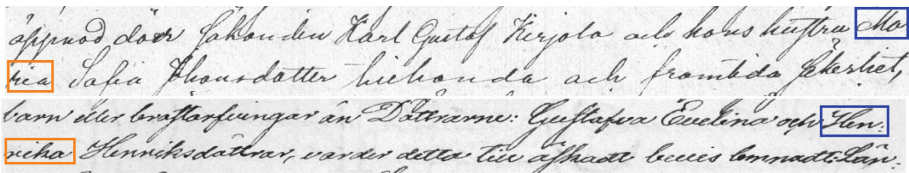 öppnad dörr Sökanden Karl Gustaf Kerjola och hans hustru Ma
ria Sofia Johansdotter hiehonda och framtida säkerhet,
barn eller bröstarfvingar än Döttrarne: Gustafva Evelina och Hen-
rika Henriksdöttrar, varder detta till äskadt bevis lemnadt. Län-